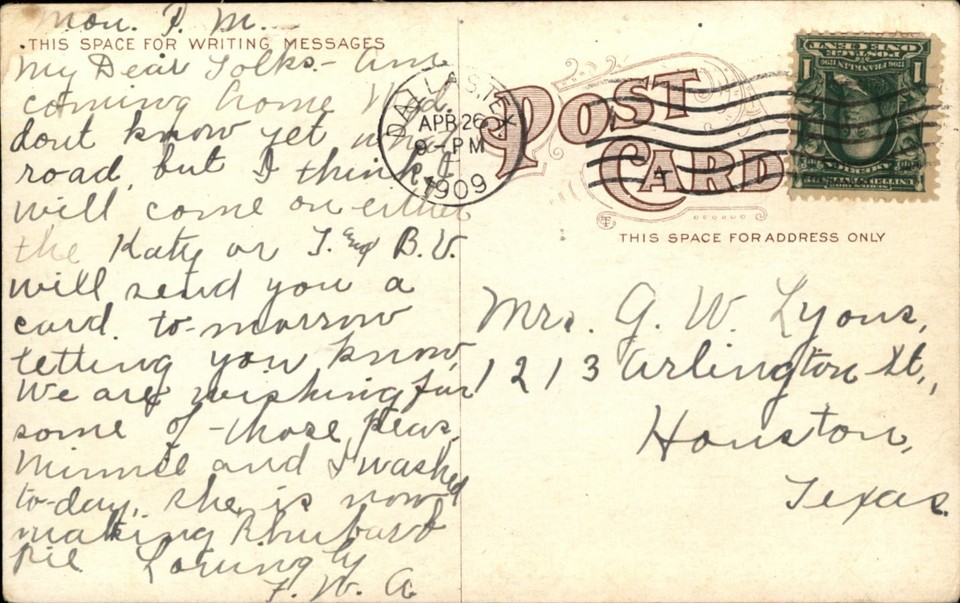 Mon. P. M.
THIS SPACE FOR WRITING MESSAGES
My Dear Folks- Am
coming home Wed.
dont know yet
road, but I think I
will come on either
the Katy or T. and B.V.
will send you a
card to-morrow
letting you know,
We are wishing for
some of those pews,
Minnie and I washed
to-day, she is now
making Rhubarb
Pie Lovingly
F. W. A
DALLAS, TEX
APR 26
9-PM
1909
POST
CARD
THIS SPACE FOR ADDRESS ONLY
Mrs. G. W. Lyons,
1213 Arlington St.,
Houston,
Texas.
ONE CENT
POSTAGE
1706 FRANKLIN 1790
1 1
UNITED STATES OF
AMERICA